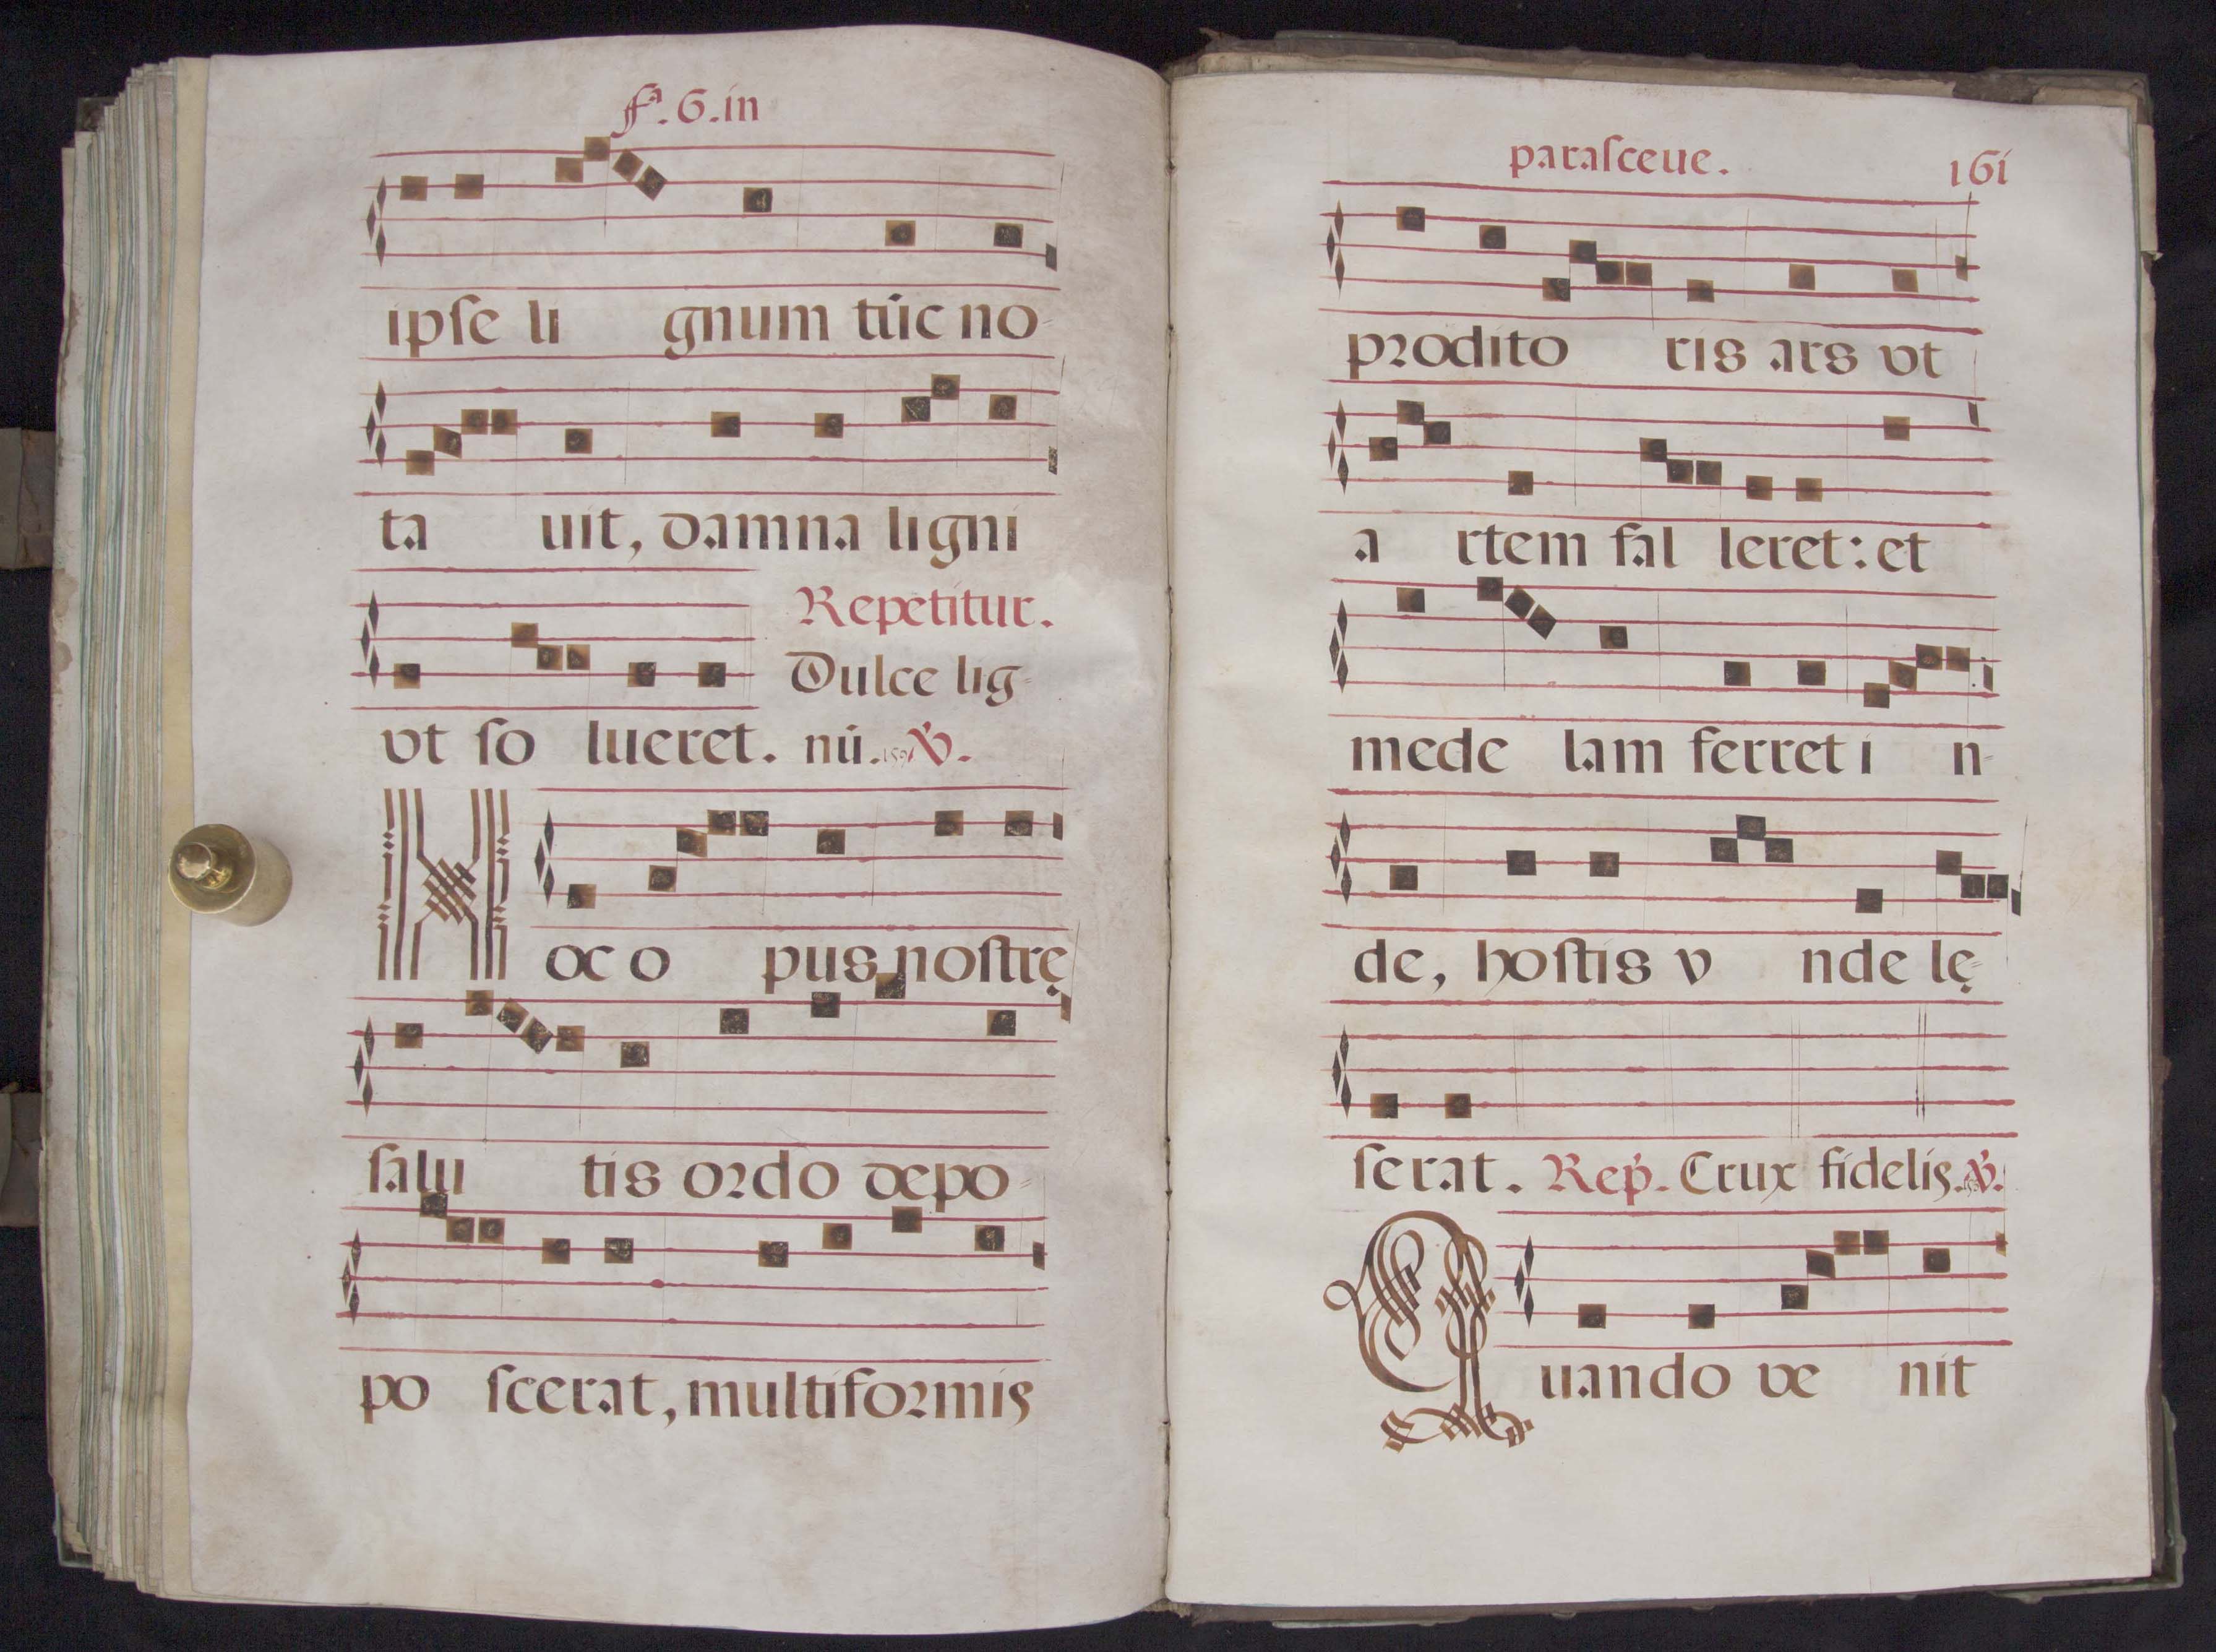 fª. 6. in
ipſe li gnum tūc no-
ta uit, damna ligni
Repetitur.
Dulce lig-
vt ſo lueret. nū. ℣.
Hoc o pus noſtrę
ſalu tis ordo depo-
po ſcerat, multiformis
paraſceue. 161
prodito ris ars vt
a rtem fal leret: et
mede lam ferret i n-
de, hoſtis v nde lę-
ſerat. Rep̄. Crux fidelis. ℣.
Quando ve nit